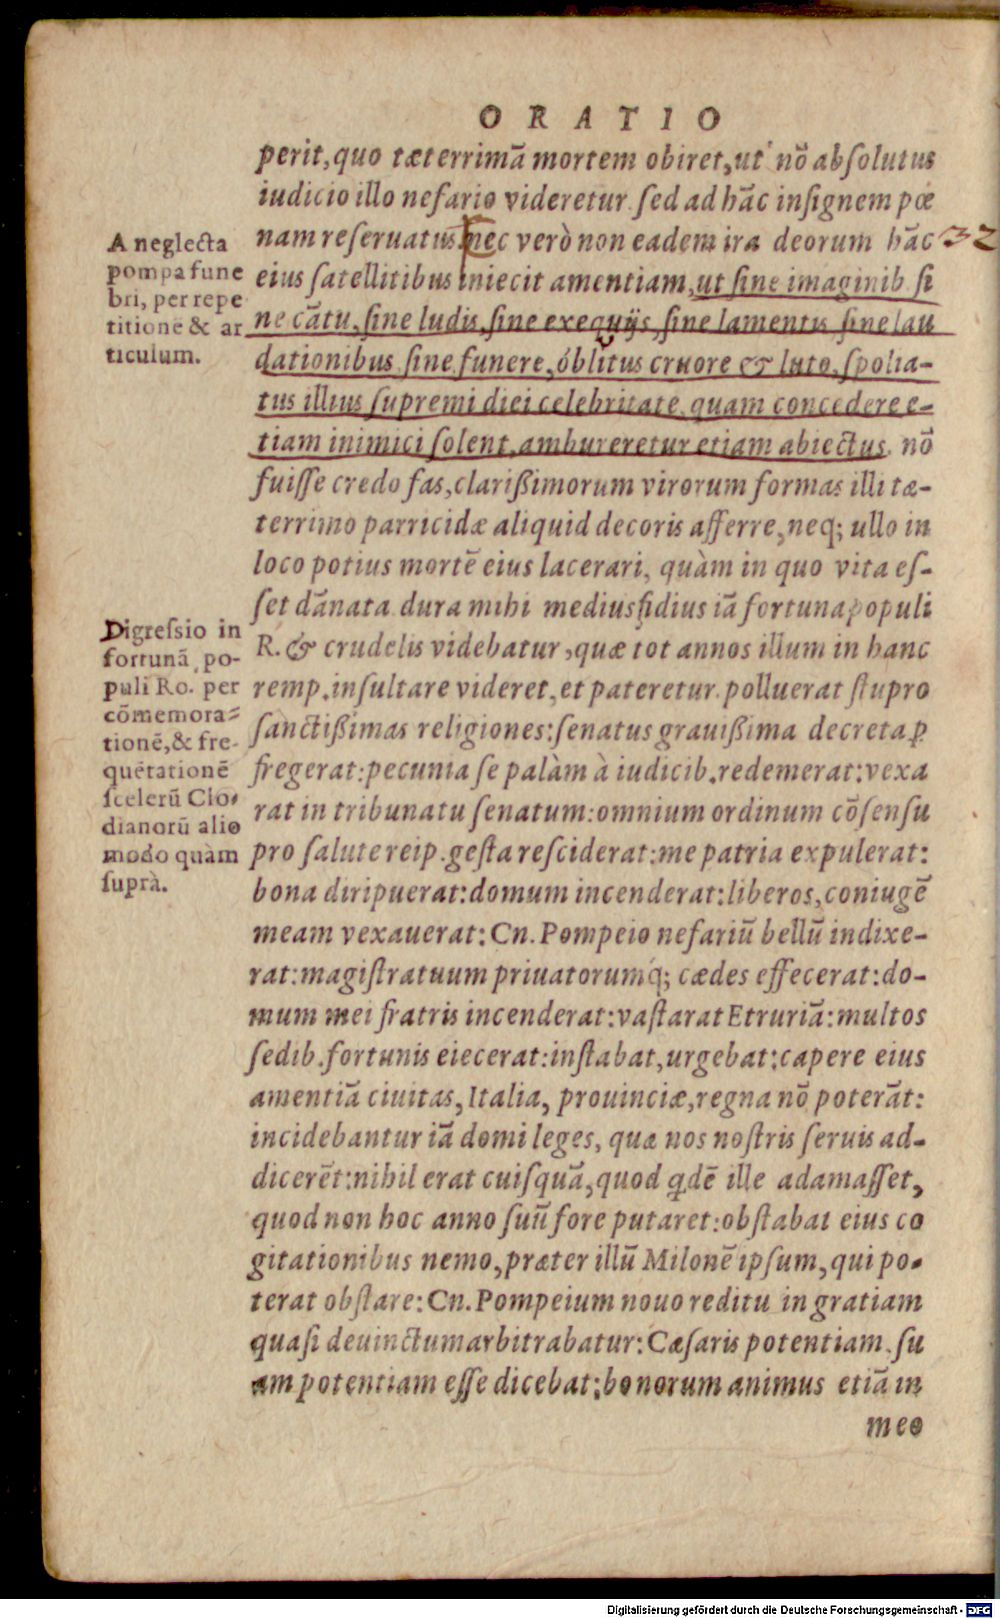 ORATIO
perit, quo tæterrimā mortem obiret, ut nō absolutus
iudicio illo nefario videretur. sed ad hāc insignem pœ
nam reseruatus. nec verò non eadem ira deorum hāc
32
eius satellitibus iniecit amentiam, ut sine imaginib. si
ne cātu, sine ludis, sine exequijs, sine lamentis sine lau
dationibus. sine funere, oblitus cruore & luto, spolia-
tus illius supremi diei celebritate, quam concedere e-
tiam inimici solent, ambureretur etiam abiectus. nō
fuisse credo fas, clarißimorum virorum formas illi tæ-
terrimo parricidæ aliquid decoris afferre, neq; ullo in
loco potius mortē eius lacerari, quàm in quo vita es-
set dānata. dura mihi mediusfidius iā fortuna populi
R. & crudelis videbatur, quæ tot annos illum in hanc
remp. insultare videret, et pateretur. polluerat stupro
sanctißimas religiones: senatus grauißima decreta ꝑ
fregerat: pecunia se palàm à iudicib. redemerat: vexa
rat in tribunatu senatum: omnium ordinum cōsensu
pro salute reip. gesta resciderat: me patria expulerat:
bona diripuerat: domum incenderat: liberos, coniugē
meam vexauerat: Cn. Pompeio nefariū bellū indixe-
rat: magistratuum priuatorumq́; cædes effecerat: do-
mum mei fratris incenderat: vastarat Etruriā: multos
sedib. fortunis eiecerat: instabat, urgebat: capere eius
amentiā ciuitas, Italia, prouinciæ, regna nō poterāt:
incidebantur iā domi leges, quæ nos nostris seruis ad-
dicerēt: nihil erat cuisquā, quod qdē ille adamasset,
quod non hoc anno suū fore putaret: obstabat eius co
gitationibus nemo, præter illū Milonē ipsum, qui po-
terat obstare: Cn. Pompeium nouo reditu in gratiam
quasi deuinctum arbitrabatur: Cæsaris potentiam. su
am potentiam esse dicebat: bonorum animus etiā in
meo
A neglecta
pompa fune
bri, per repe
titionē & ar
ticulum.
Digressio in
fortunā po-
puli Ro. per
cōmemora-
tionē, & fre-
quētationē
scelerū Clo-
dianorū alio
modo quàm
suprà.
Digitalisierung gefördert durch die Deutsche Forschungsgemeinschaft - DFG